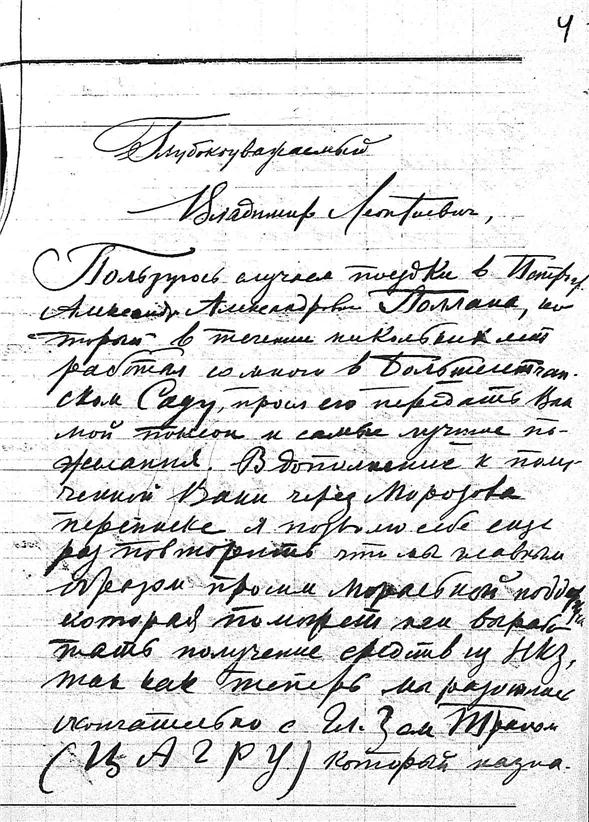 4
Глубокоуважаемый
Владимир Леонтиевич,
Пользуюсь случаем поездки в Петрогр.
Александра Александровича ко-
торый в течении лет
работал со мною в
ском Саду, прося его передать Вам
мой поклон и самые лучшие по-
желания. В дополнение к полу-
ченной Вами через Морозова
переписке я позволю себе еще
раз повторить что мы главным
образом просим моральной
которая поможет нам
тать получение средств из НКЗ,
так как теперь мы разошлись
окончательно с Гл. Зем
(ЦАГРУ) который назна-